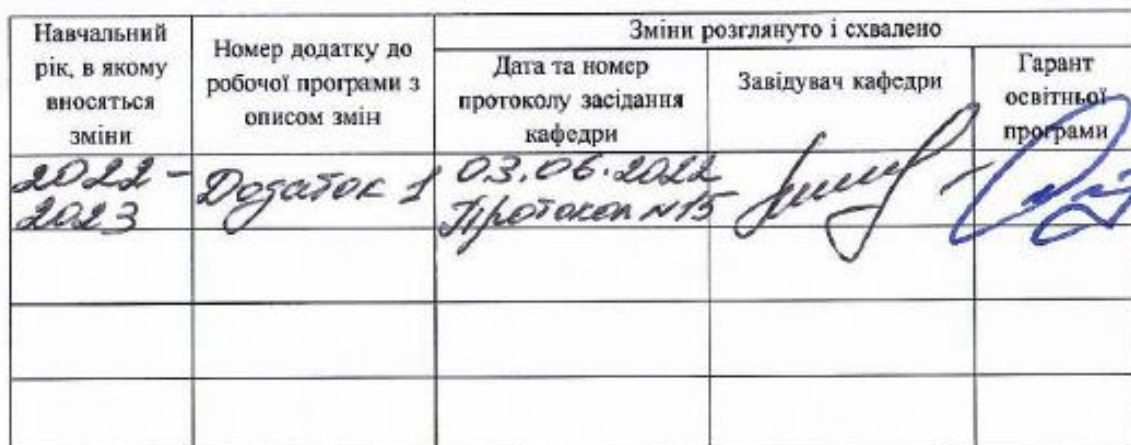 Навчальний
рік, в якому
вносяться
зміни
Номер додатку до
робочої програми з
описом змін
Зміни розглянуто і схвалено
Дата та номер
протоколу засідання
кафедри
Завідувач кафедри
Гарант
освітньої
програми
2022 -
2023
Додаток 1
03.06.2022
Протокол №15